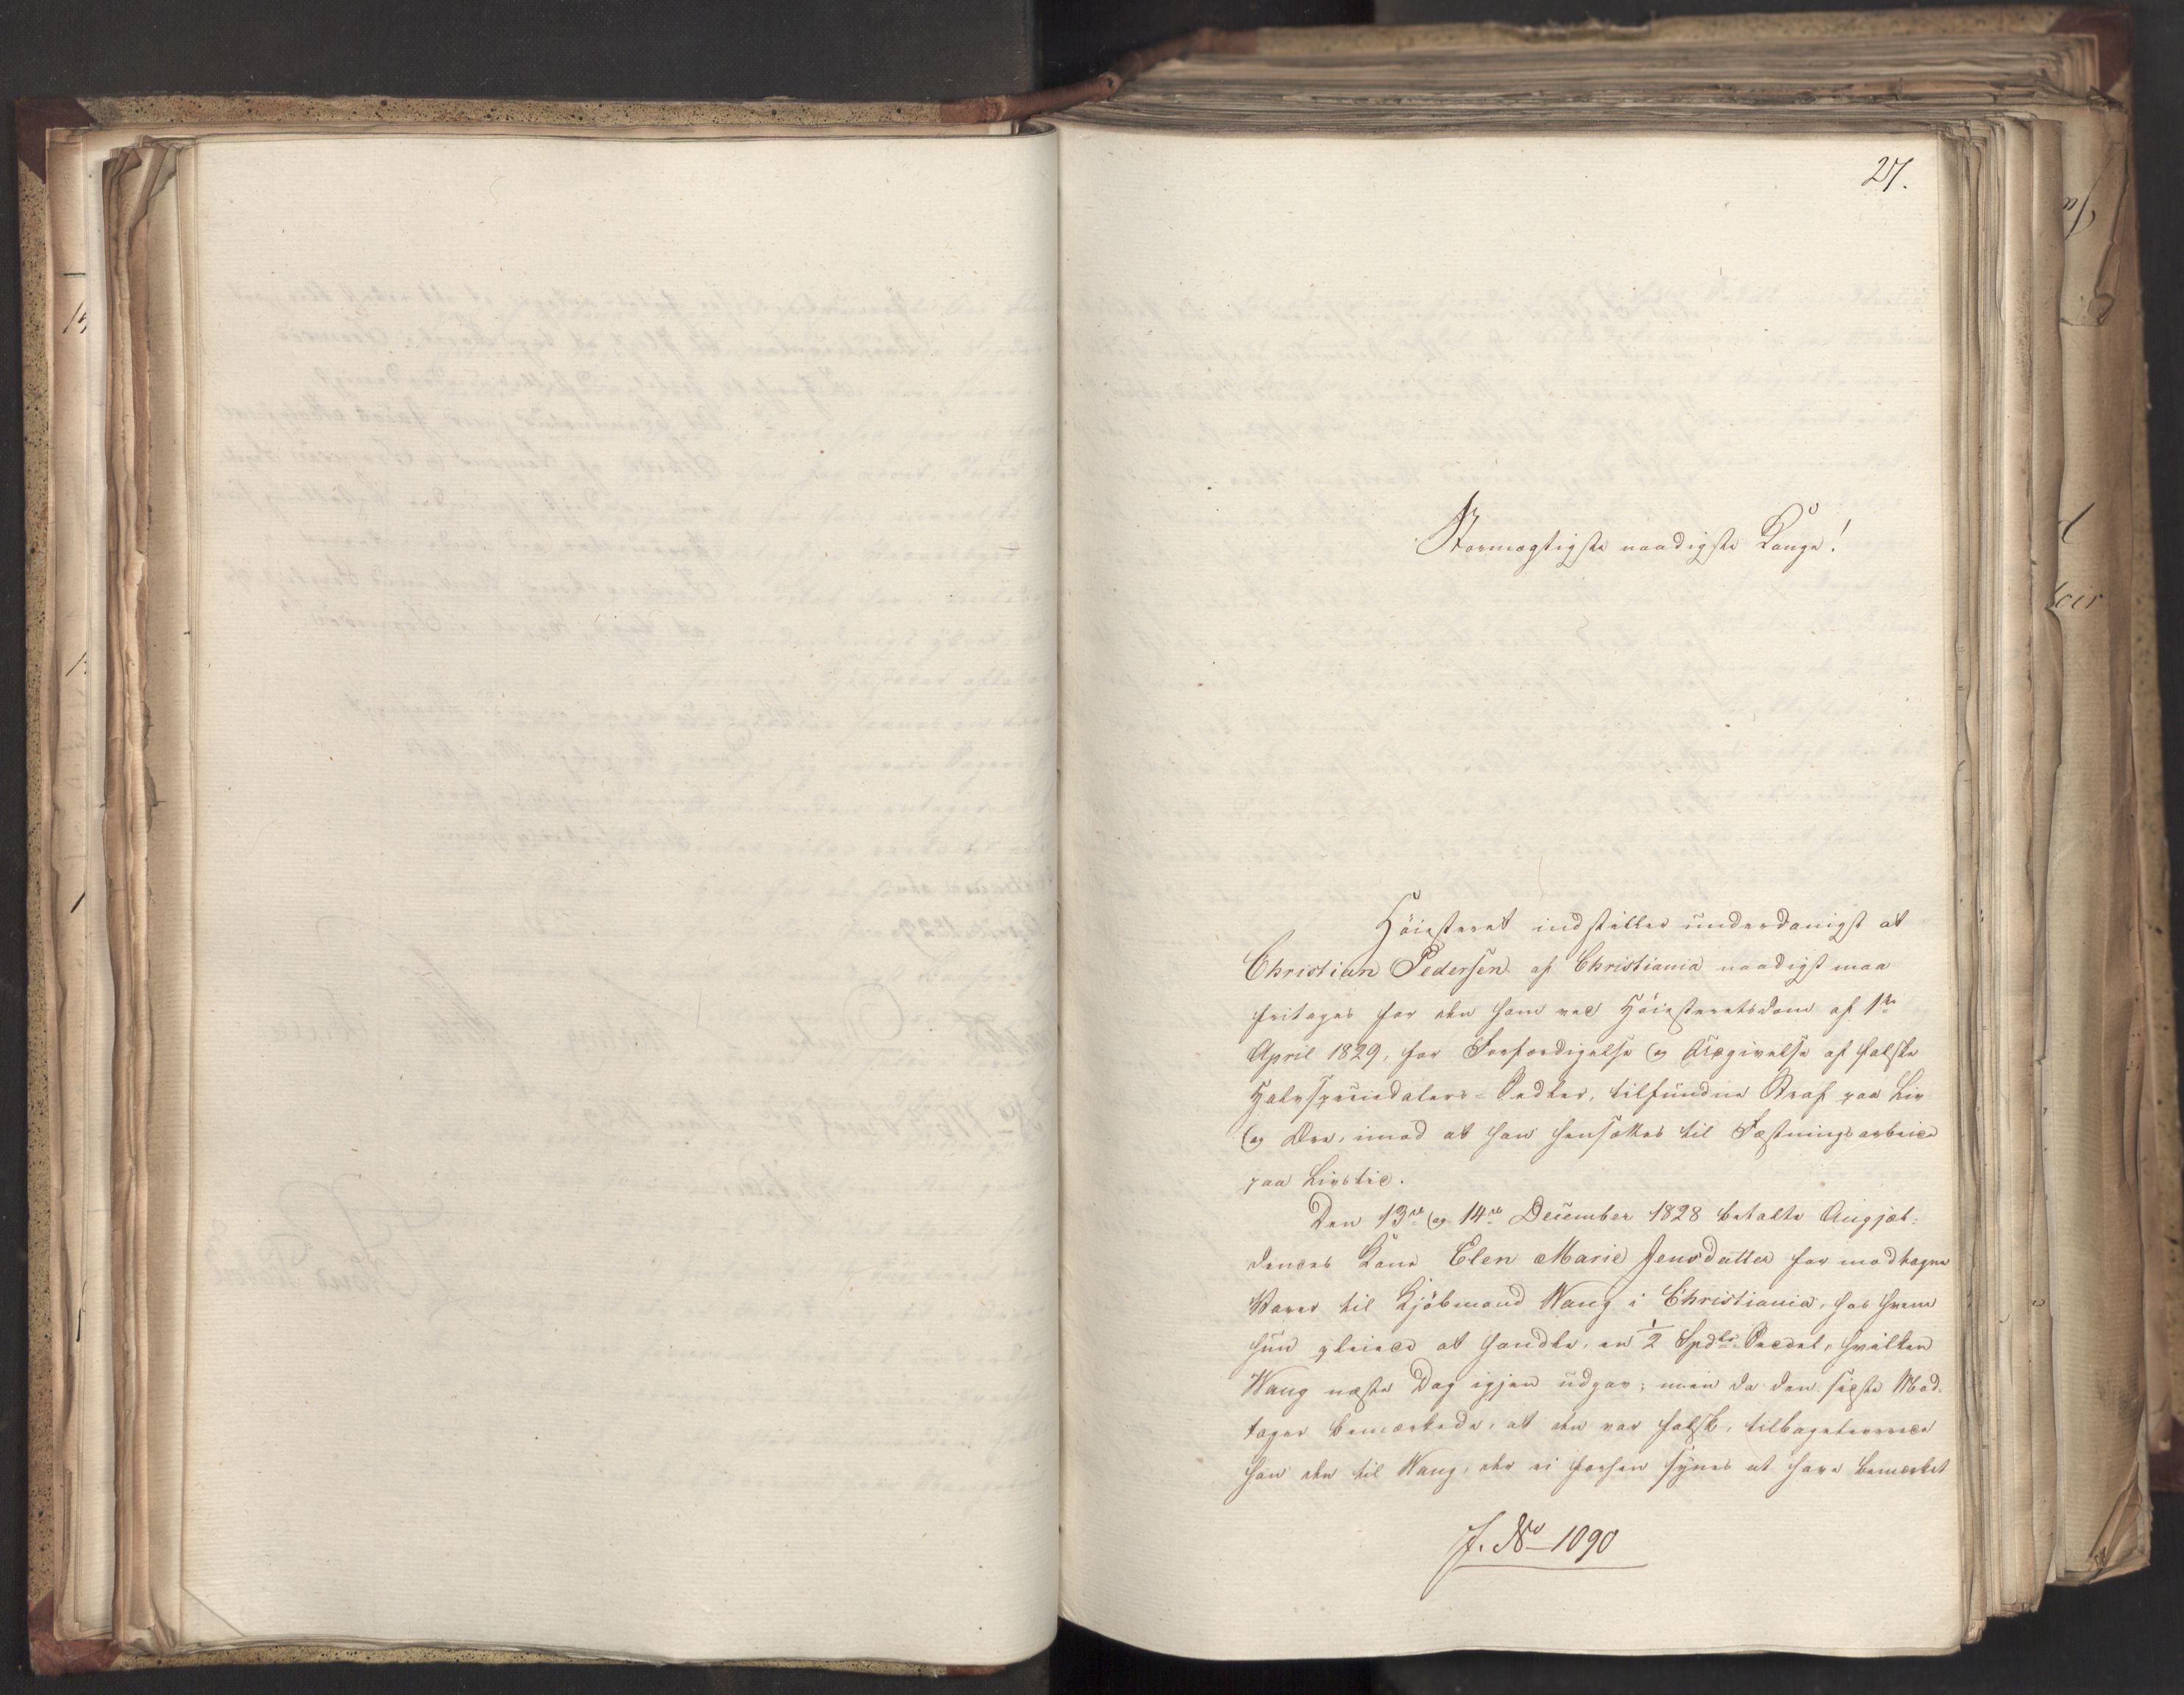 27.
Stormægtigste naadigste Konge!
Høiesteret indstiller underdanigst at
Christian Pedersen af Christiania naadigst maa
fritages for den ham ved Høiesteretsdom af 1ste
April 1829, for Forfærdigelse og Udgivelse af falske
Halvspeciedalers-Sedler, tilfundne Straf paa Liv
og Ære, imod at han hensættes til Fæstningsarbeide
paa Livstid.
Den 13de og 14de December 1828 betalte Angjæl-
dendes Kone Elen Marie Jensdatter for modtagne
Varer til Kjøbmand Wang i Christiania, hos hvem
hun pleiede at handle, en ½ Spdlr Seddel, hvilken
Wang næste Dag igjen udgav; men da den sidste Mod-
tager bemærkede, at den var falsk, tilbageleverede
han den til Wang, der ei forhen synes at have bemærket
J. No 1090